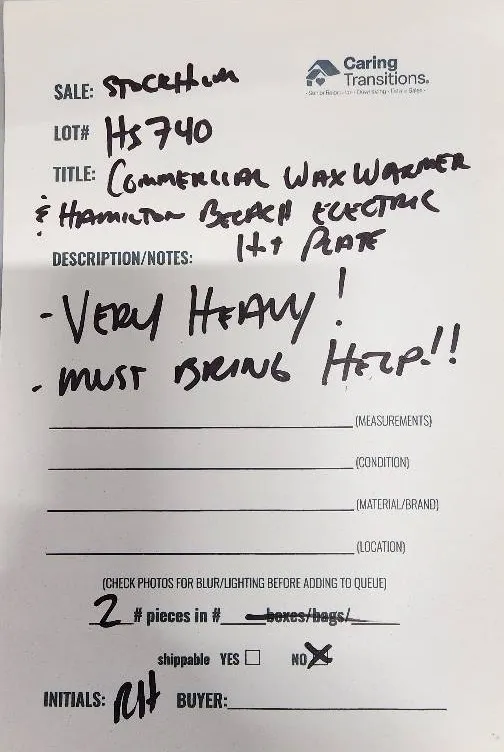 Caring
Transitions.
SALE: STOCKHUM
LOT# HS740
TITLE: COMMERCIAL WAX WARMER
& HAMILTON BEEACH ELECTRIC
HOT PLATE
DESCRIPTION/NOTES:
- VERY HEAVY!
- MUST BRING HELP!!
(MEASUREMENTS)
(CONDITION)
(MATERIAL/BRAND)
(LOCATION)
(CHECK PHOTOS FOR BLUR/LIGHTING BEFORE ADDING TO QUEUE)
2 # pieces in # boxes/bags/
shippable YES ☐ NO ☒
INITIALS: RH BUYER: